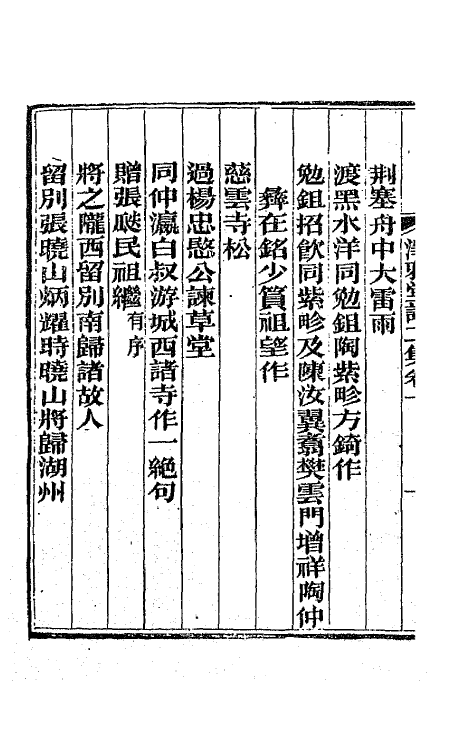 荆塞舟中大雷雨
渡黑水洋同勉鉏陶紫畛方錡作
勉鉏招飲同紫畛及陳汝翼翥樊雲門增祥陶仲
彝在銘少篔祖望作
慈雲寺松
過楊忠愍公諫草堂
同仲瀛白叔游城西諸寺作一絕句
贈張民祖繼有序
將之隴西留別南歸諸故人
留別張曉山炳耀時曉山將歸湖州